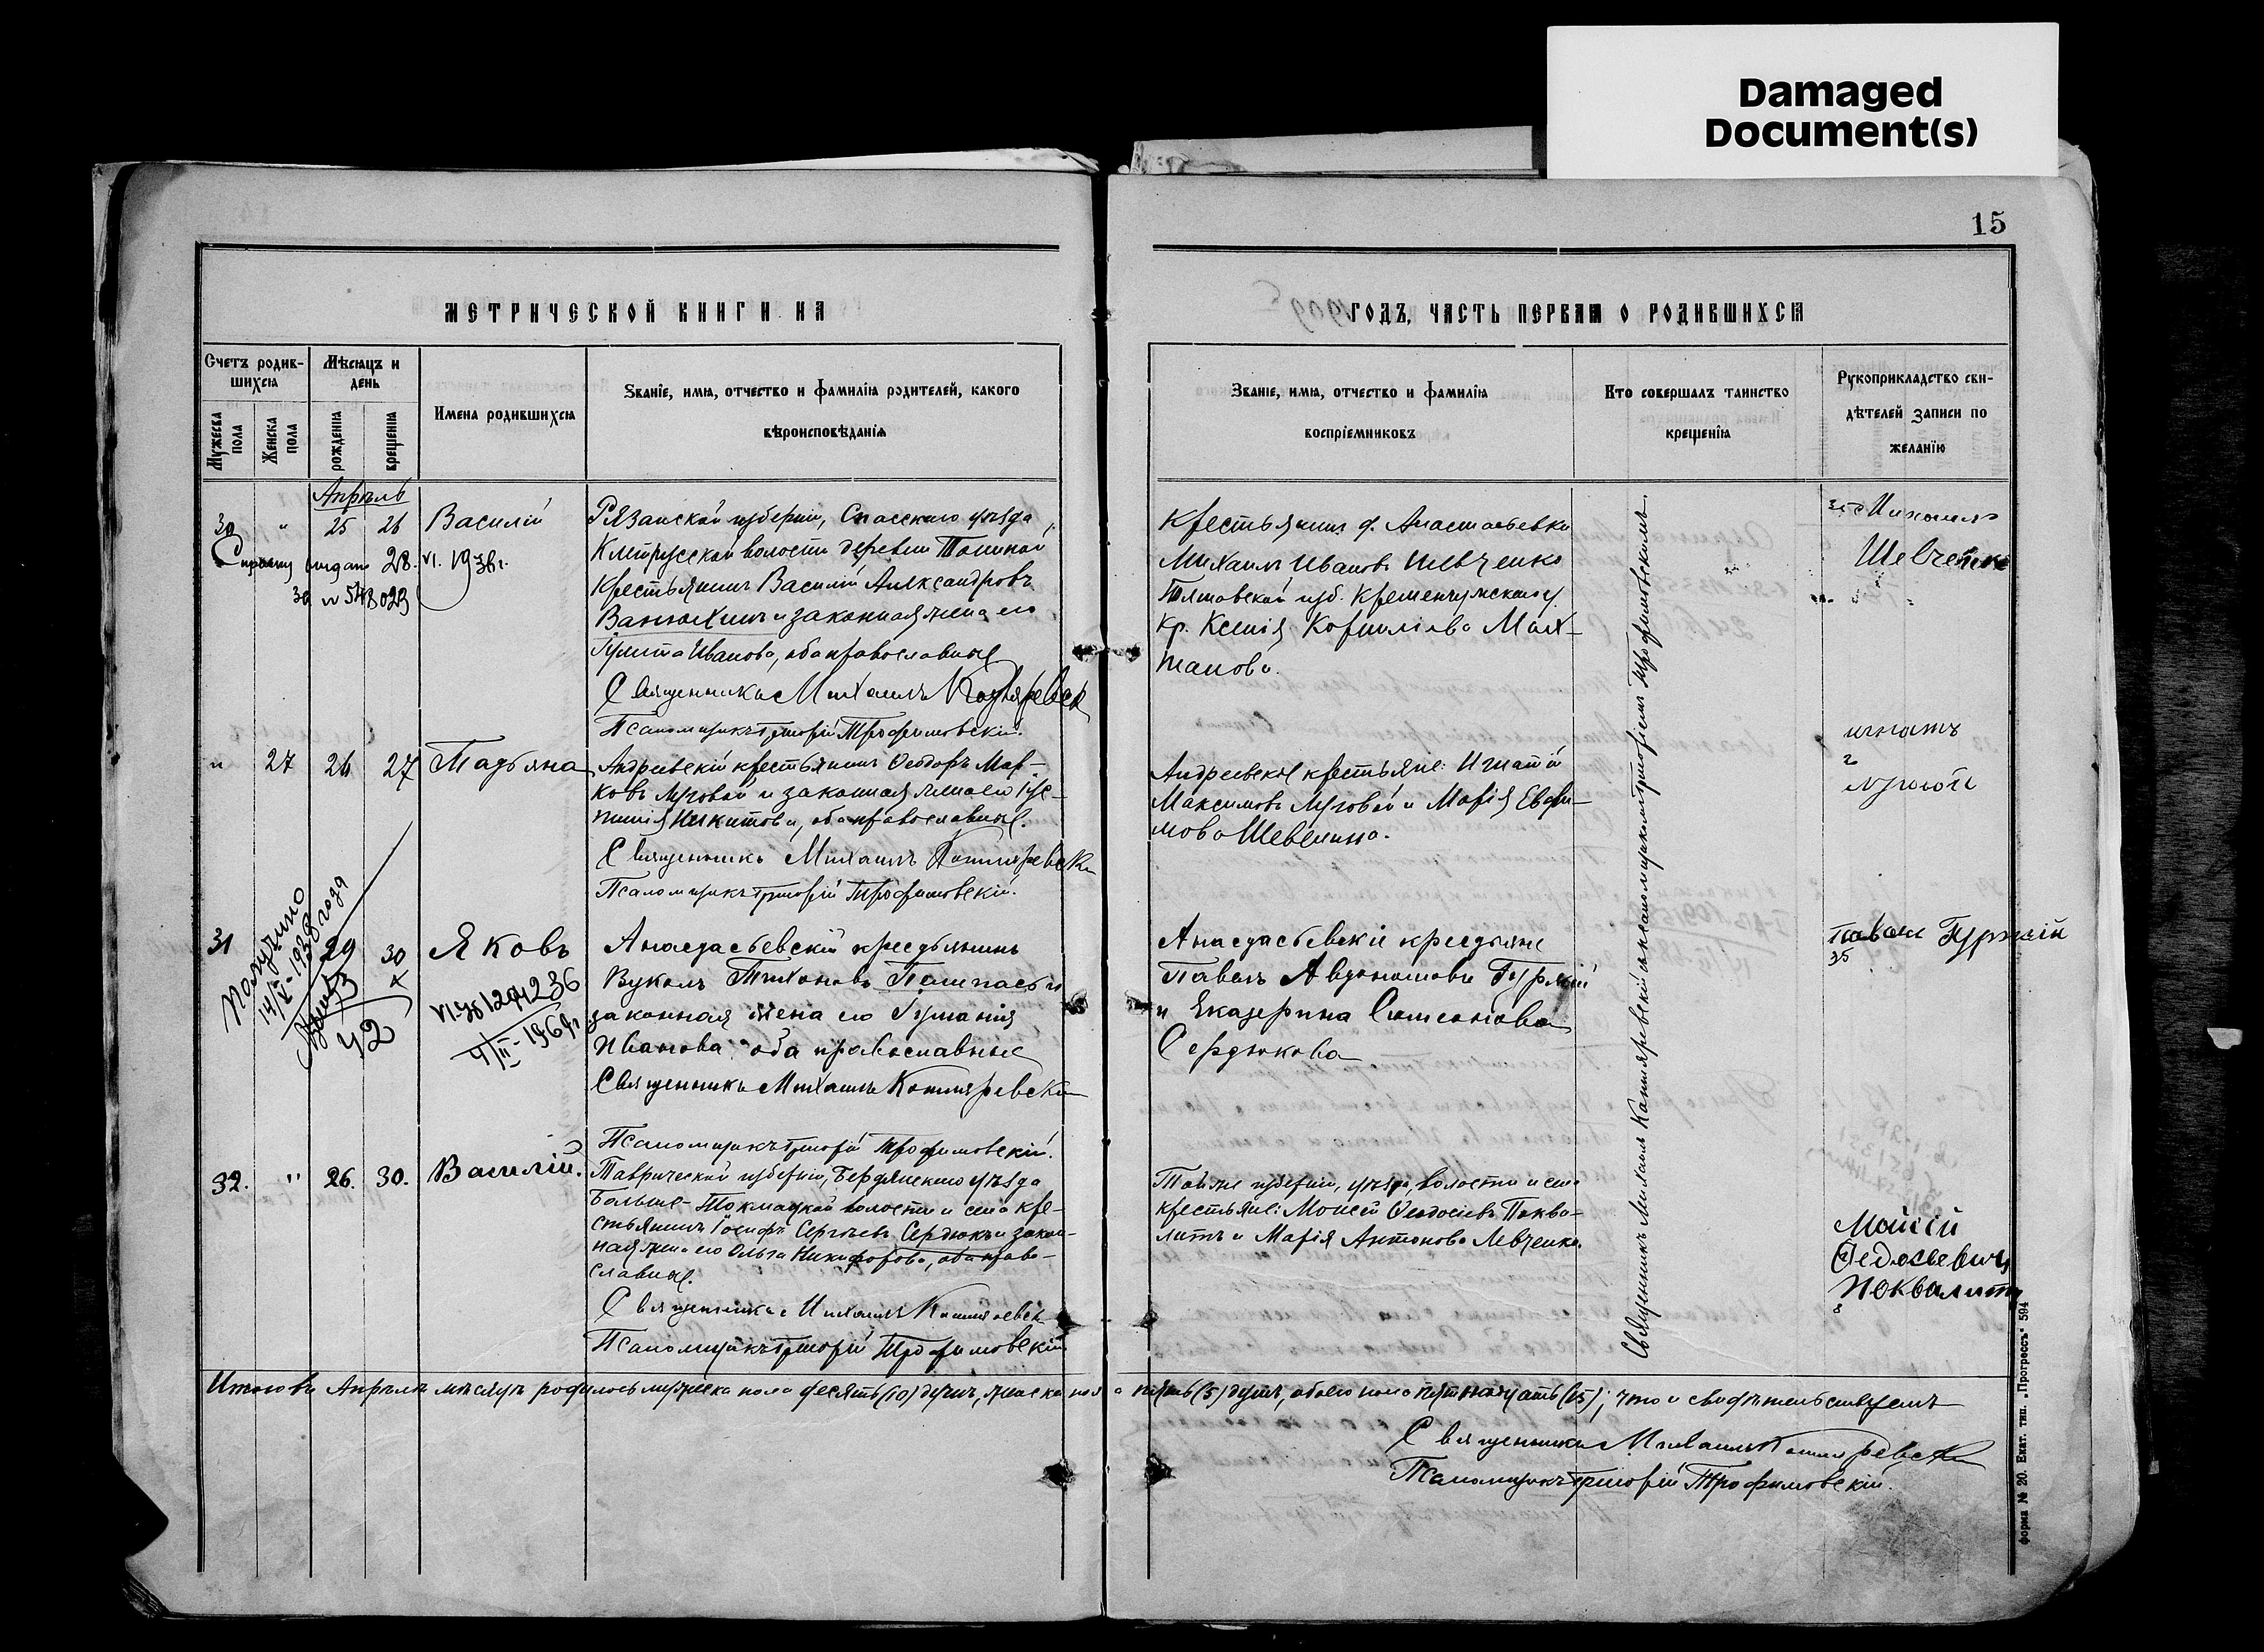 Damaged
Document(s)
15
МЕТРИЧЕСКОЙ КНИГИ НА
ГОДЪ, ЧАСТЬ ПЕРВАЯ О РОДИВШИХСЯ
Счетъ родив-
шихся
Мѣсяцъ и
день
Мужеска
пола
Женска
пола
рожденія
крещенія
Имена родившихся
Званіе, имя, отчество и фамилія родителей, какого
вѣроисповѣданія
Званіе, имя, отчество и фамилія
воспріемниковъ
Кто совершалъ таинство
крещенія
Рукоприкладство сви-
дѣтелей записи по
желанію
Апрѣль
30 " 25 26 Василій
28. VI. 1938г.
за № 548029
Рязанской губерніи, Спасскаго уѣзда,
волости деревни
Крестьянинъ Василій Александровъ
Ванюхинъ и законная жена его
Іулита Иванова, оба православные
Священникъ Михаилъ Котляревск
Псаломщикъ Григорій Трофимовскій.
Крестьянинъ д. Анастасьевки
Михаилъ Ивановъ Шевченко
губ. Кременчугскаго у
кр. Ксенія Корнилієва
Шевченко
" 27 26 27 Татьяна
Андреевскій крестьянинъ Ѳеодоръ Мар-
ковъ Луговой и законная жена его Іус-
тинія Никитова, оба православные.
Священникъ Михаилъ Котляревски
Псаломщикъ Григорій Трофимовскій.
Андреевскіе крестьяне: Игнатій
Максимовъ Луговой и Марія Евфи-
мова
игнатъ
31 29 30 Яковъ
Получено
14/V-1938 года
42
VI.ЯБ 1291236
4/II-1969г
Анастасьевскій крестьянинъ
Вуколъ Тихоновъ и
законная жена его
Иванова, оба православные
Священникъ Михаилъ Котляревски
Псаломщикъ Григорій Трофимовскій.
Анастасьевскіе крестьяне
Павелъ Автономовъ
и Екатерина Симеонова
Сердюкова
32. " 26. 30. Василій.
Таврической губерніи, Бердянскаго уѣзда
Больше-Токмацкой волости и села кре-
стьянинъ Іосифъ Сергѣевъ Сердюкъ и закон-
ная жена его Ольга Никифорова, оба право-
славные.
Священникъ Михаилъ Котляревск
Псаломщикъ Григорій Трофимовскій
Той же губерніи, уѣзда, волости и села
крестьяне: Моисей Ѳеодосіевъ Поква-
литъ и Марія Антонова Левченко.
Мойсій
Федосьевичъ
Поквалитъ
Священникъ Михаилъ Котляревскій съ псаломщикомъ Григоріемъ Трофимовскимъ.
Итого въ Апрѣлѣ мѣсяцѣ родилось мужеска пола десять (10) душъ, женска пола пять (5) душъ, обоего пола пятнадцать (15); что и свидѣтельствуемъ
Священникъ Михаилъ Котляревски
Псаломщикъ Григорій Трофимовскій.
Форма № 20. Екат. тип. „Прогрессъ" 594